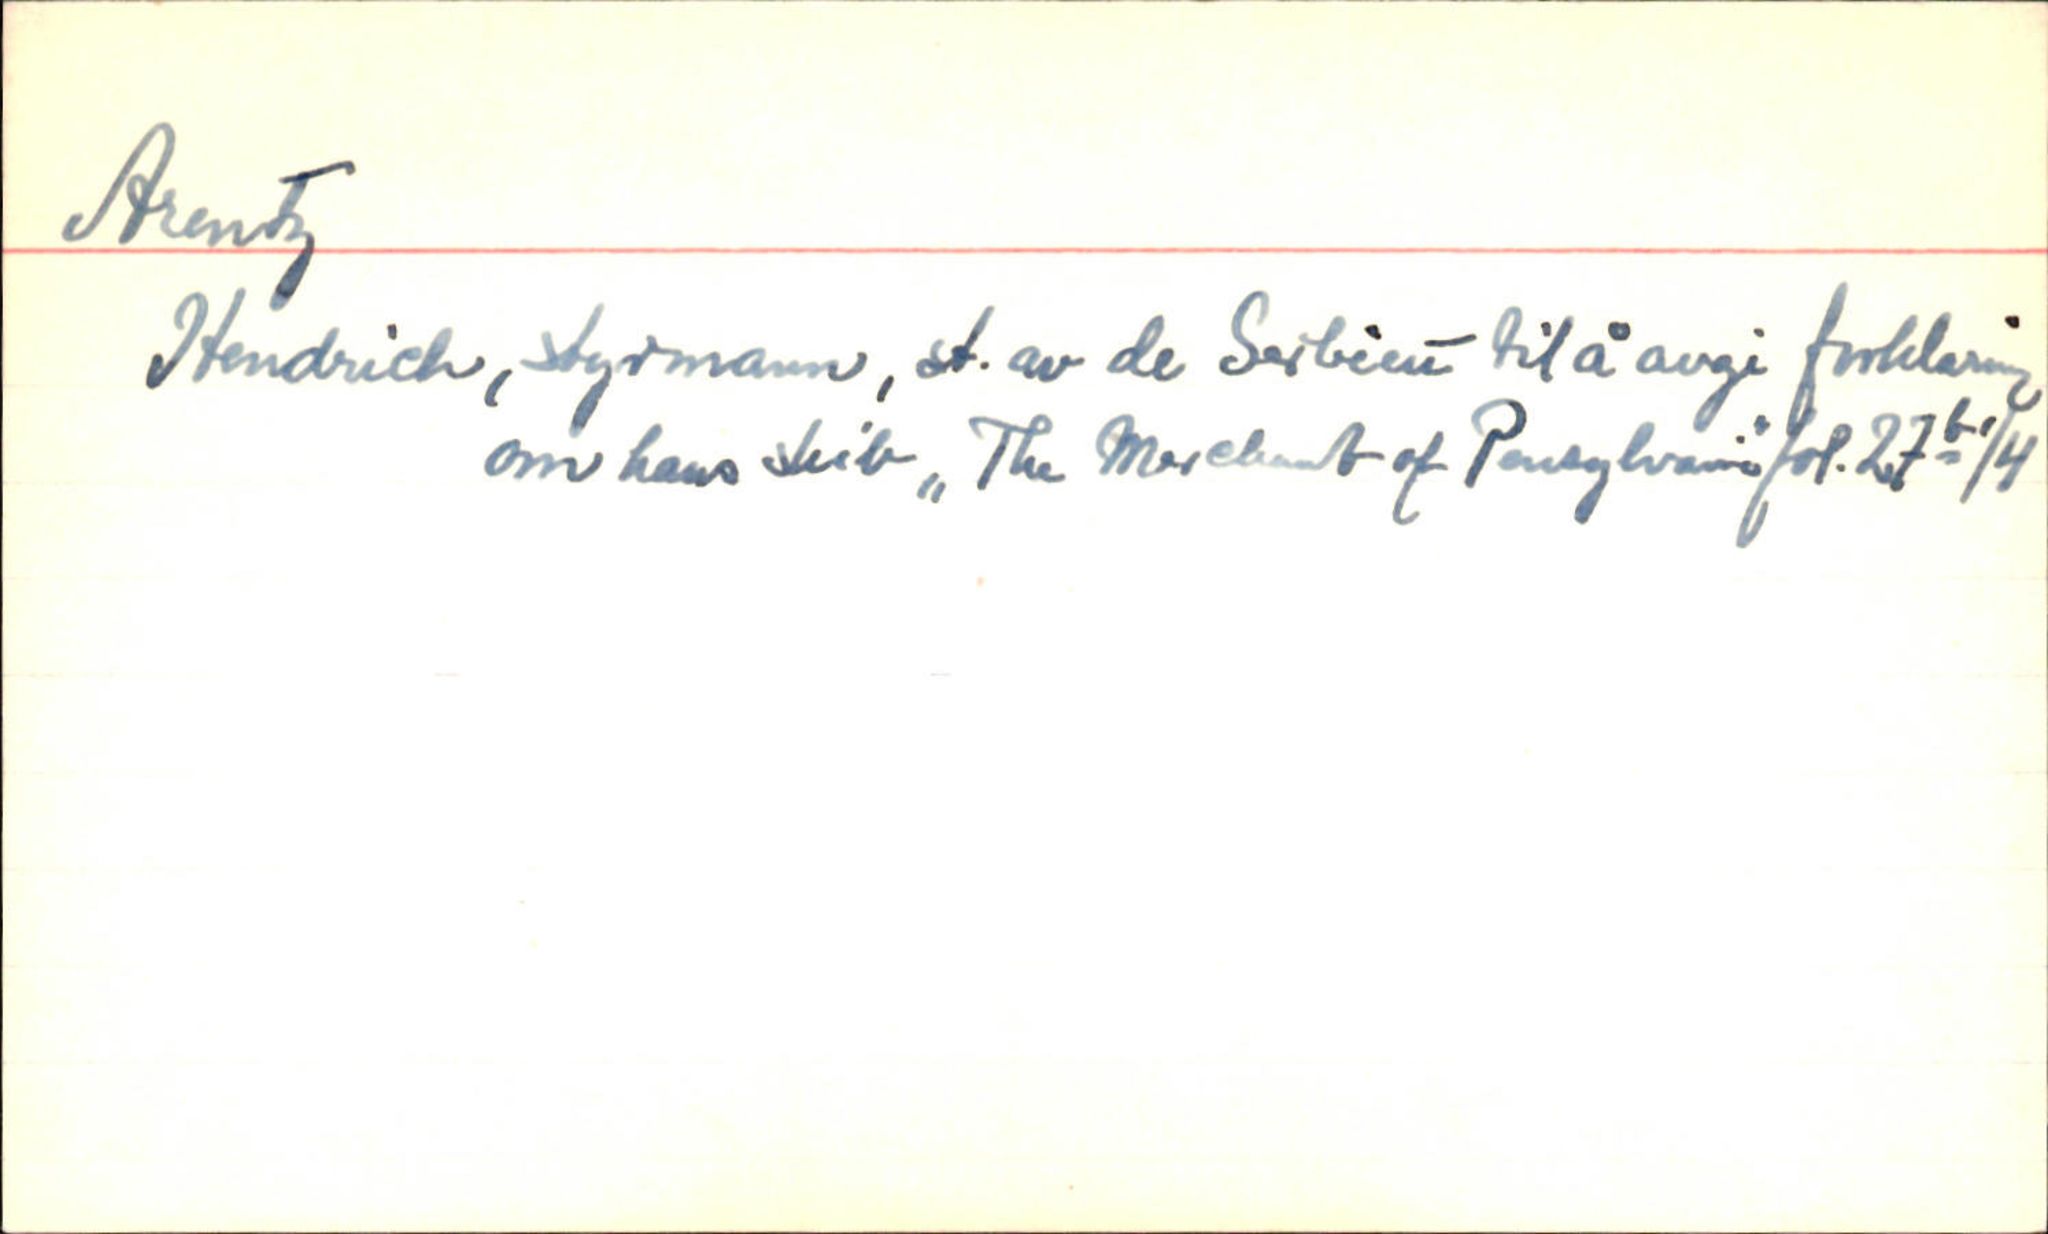 Arentz
Hendrich, styrmann, st. av de Seibień til å avgi forklaring
om hans skib „The Merchant of Pensylvani" fol. 27b 1/4